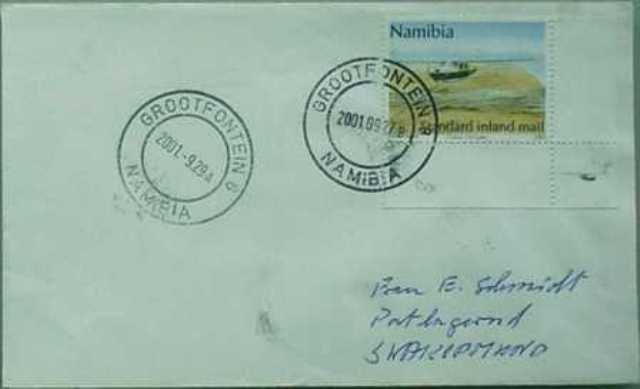 Namibia
Standard inland mail
GROOTFONTEIN 8
2001 09 27 B
NAMIBIA
GROOTFONTEIN 8
2001 -9 29 A
NAMIBIA
Frau E. Schmidt
SWAKOPMUND